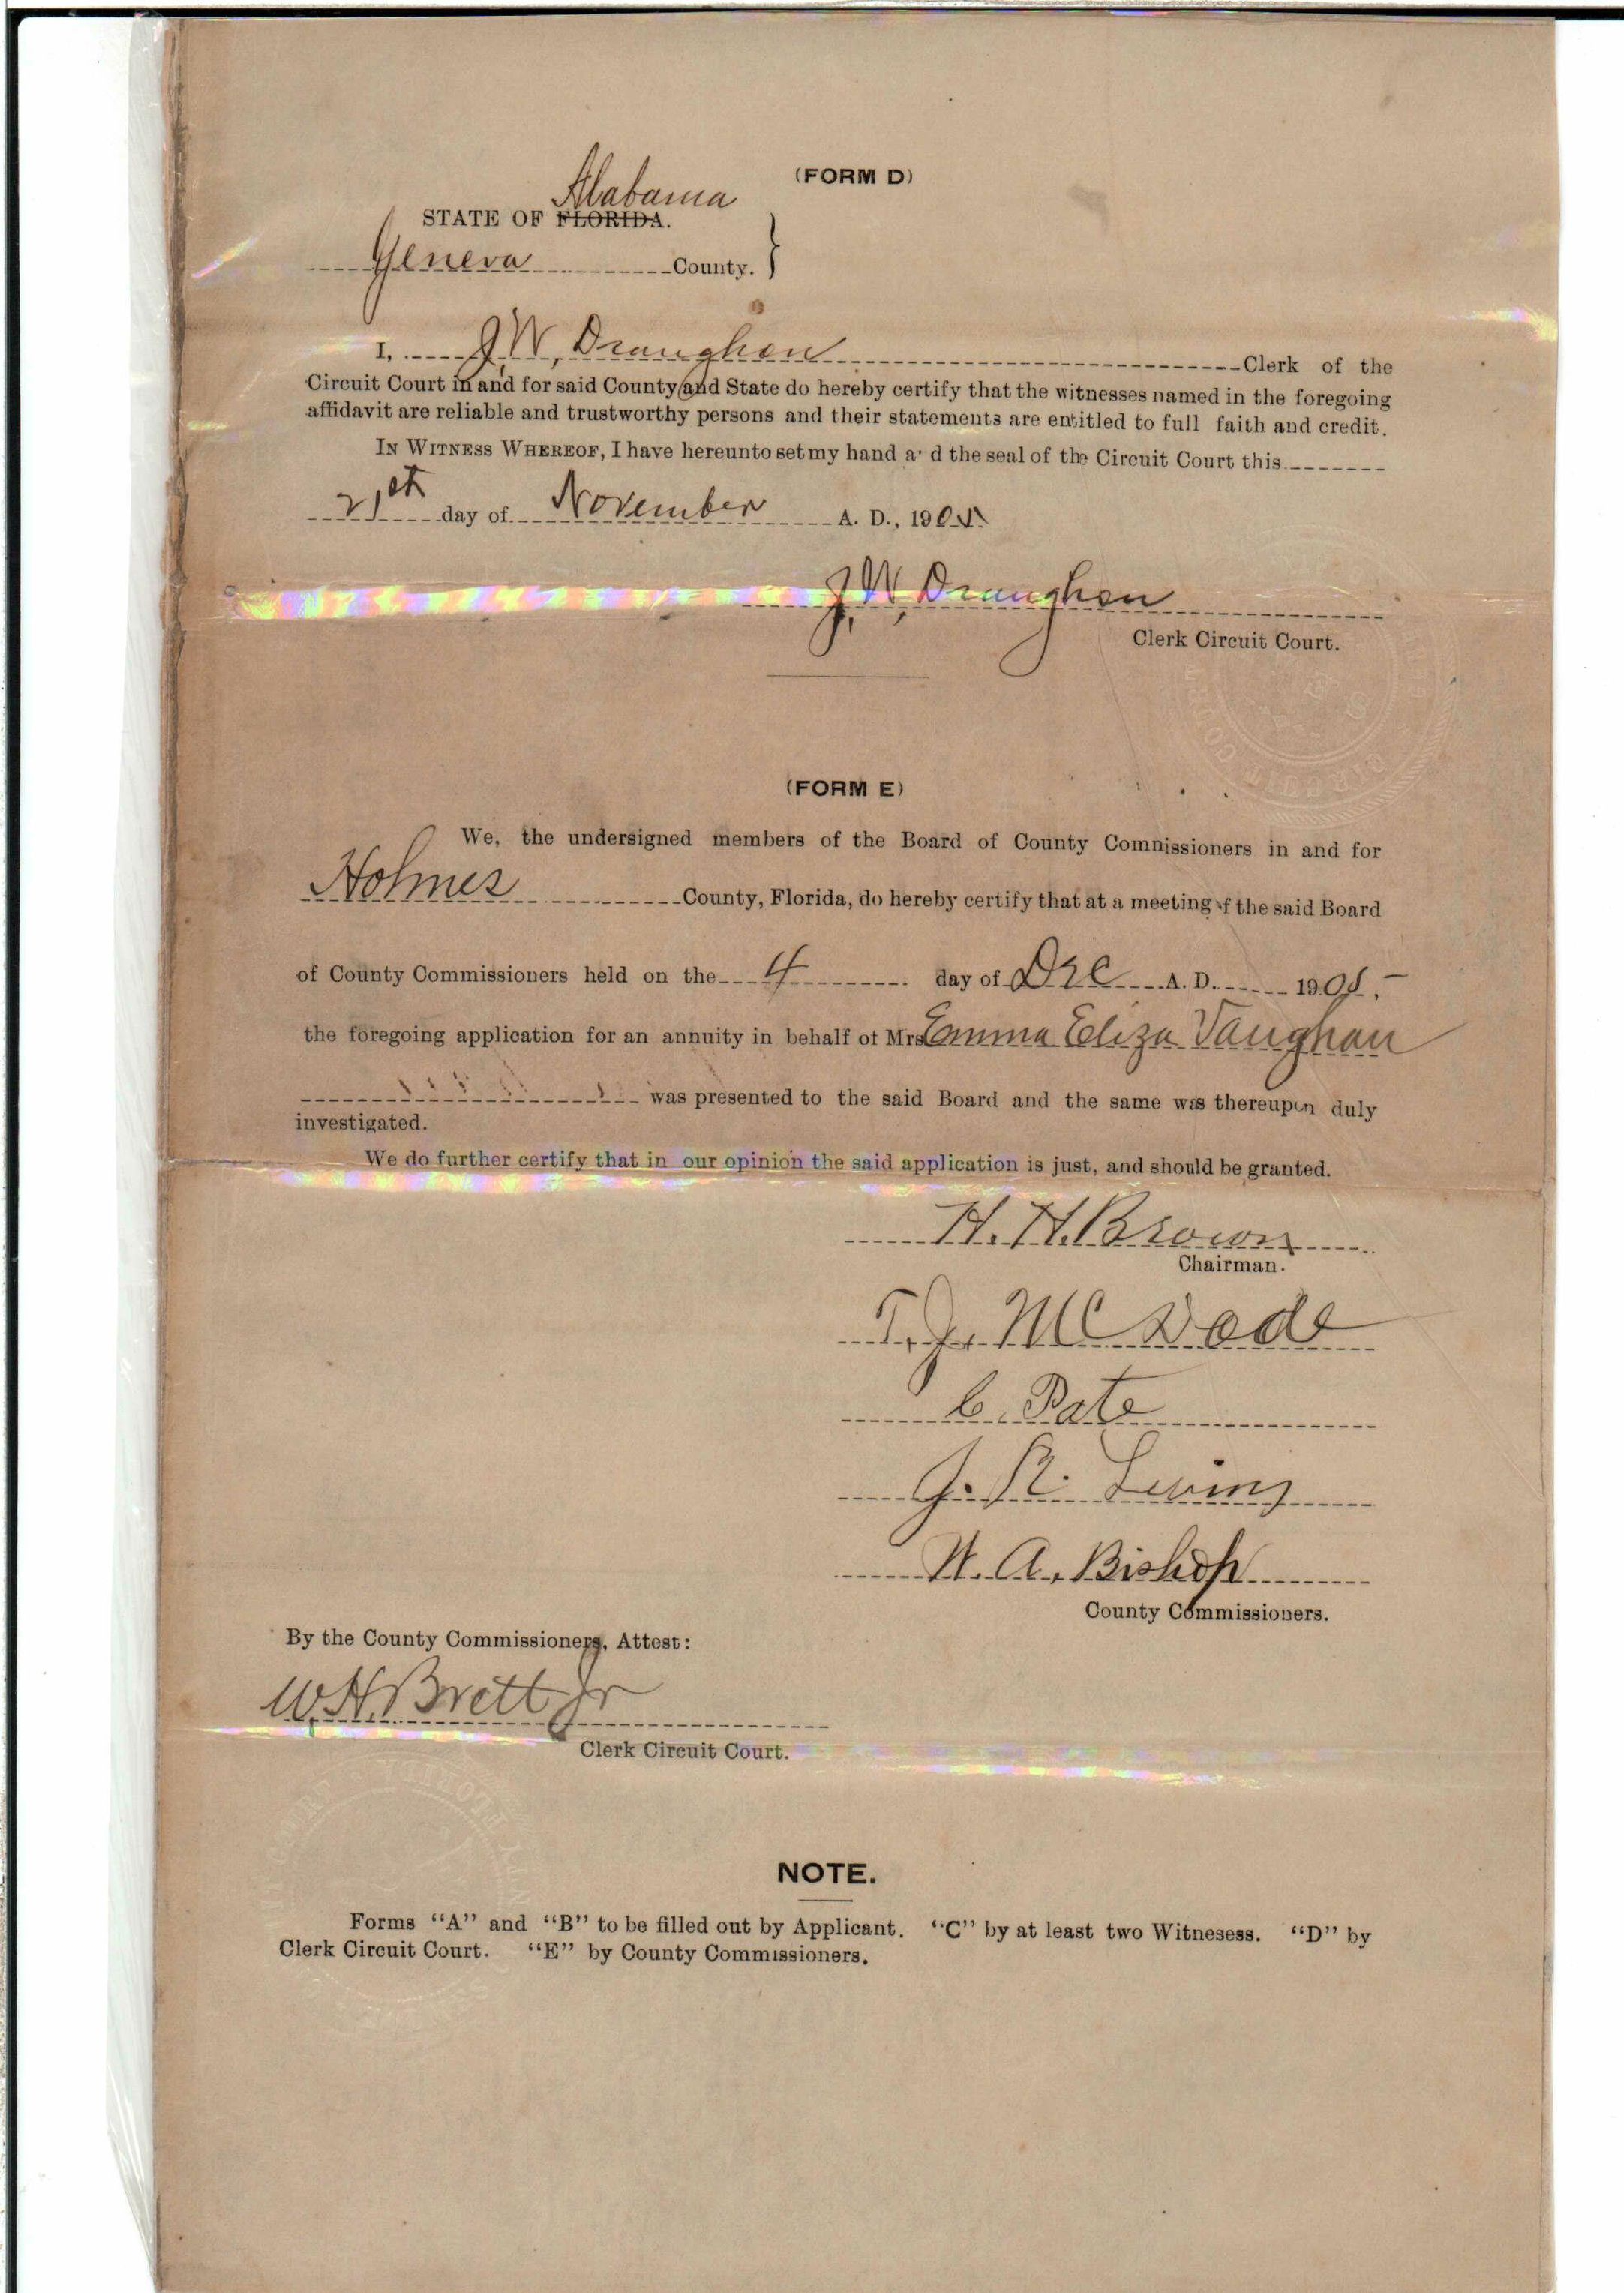 (FORM D)
Alabama
STATE OF FLORIDA.
Geneva County.
I, J, W, Draughon Clerk of the
Circuit Court in and for said County and State do hereby certify that the witnesses named in the foregoing
affidavit are reliable and trustworthy persons and their statements are entitled to full faith and credit.
IN WITNESS WHEREOF, I have hereunto set my hand a d the seal of the Circuit Court this
21st day of November A. D., 1905
J, W, Draughon
Clerk Circuit Court.
(FORM E)
We, the undersigned members of the Board of County Comnissioners in and for
Holmes County, Florida, do hereby certify that at a meeting of the said Board
of County Commissioners held on the 4 day of Dec A. D. 1905.
the foregoing application for an annuity in behalf ot Mrs Emma Eliza Vaughan
was presented to the said Board and the same was thereupon duly
investigated.
We do further certify that in our opinion the said application is just, and should be granted.
H. H. Brown
Chairman.
T. J. McDade
C. Pate
J. R.
W. A. Bishop
County Commissioners.
By the County Commissioners, Attest:
W. H. Brett Jr
Clerk Circuit Court.
NOTE.
Forms "A" and "B" to be filled out by Applicant. "C" by at least two Witnesess. "D" by
Clerk Circuit Court. "E" by County Commissioners.